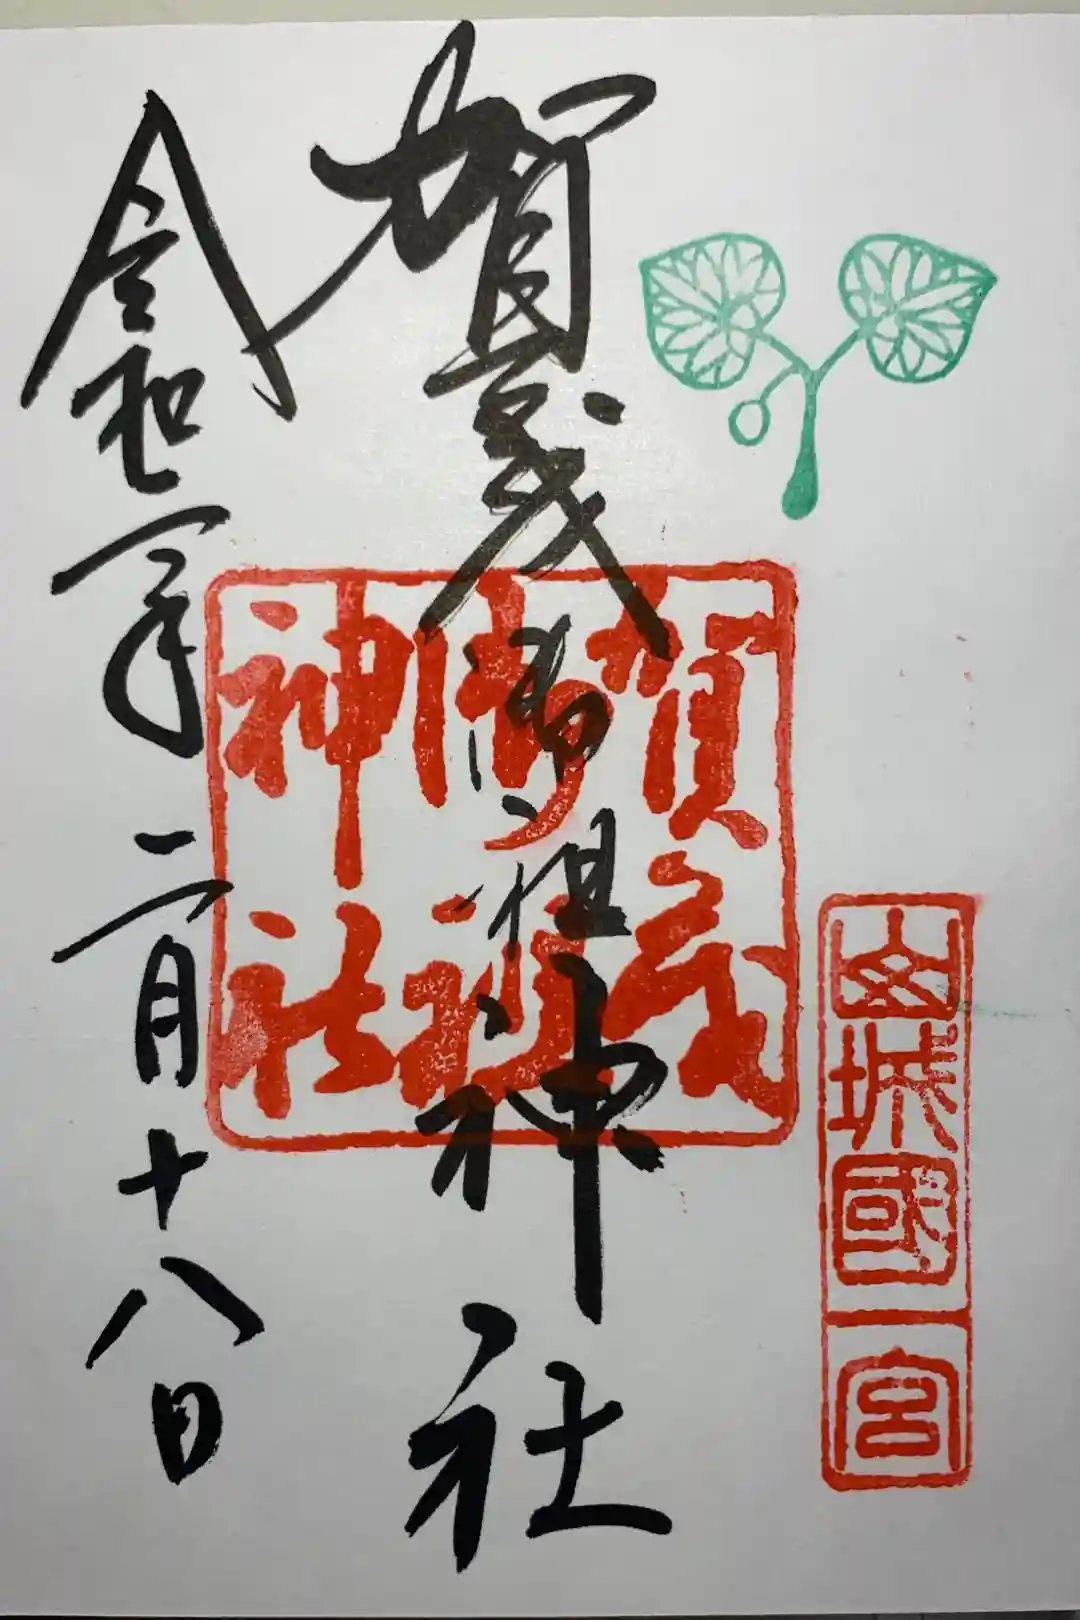 山城國一宮
賀茂御祖神社
賀茂
御祖
神社
令和二年二月十八日